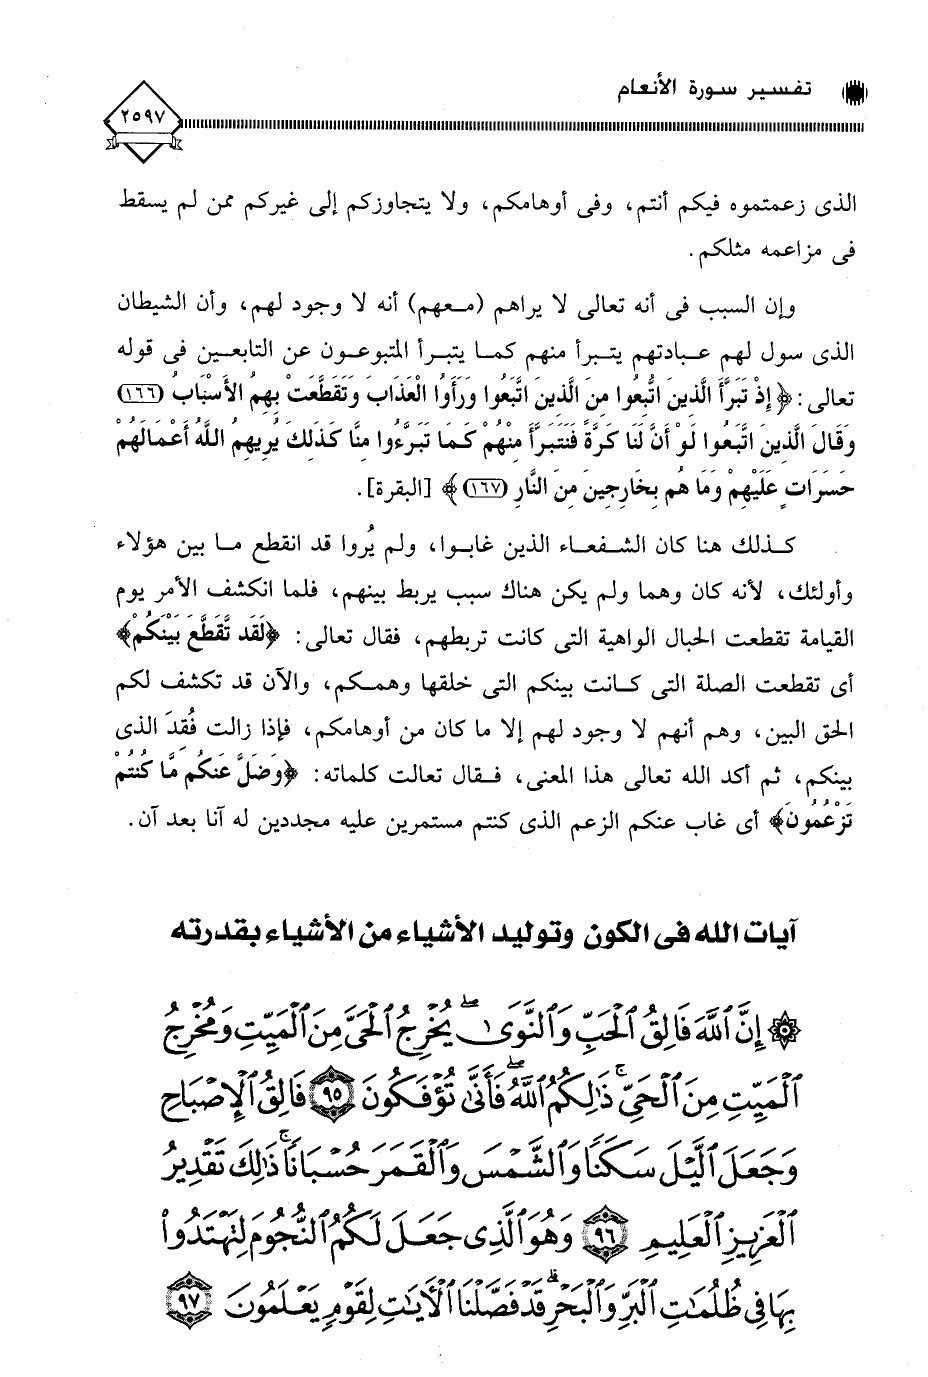 تفسير سورة الأنعام
٢٥٩٧
الذى زعمتموه فيكم أنتم، وفى أوهامكم، ولا يتجاوزكم إلى غيركم ممن لم يسقط
فى مزاعمه مثلكم.
وإن السبب فى أنه تعالى لا يراهم (معهم) أنه لا وجود لهم، وأن الشيطان
الذى سول لهم عبادتهم يتبرأ منهم كما يتبرأ المتبوعون عن التابعين فى قوله
تعالى: ﴿إِذْ تَبَرَّأَ الَّذِينَ اتُّبِعُوا مِنَ الَّذِينَ اتَّبَعُوا وَرَأَوُا الْعَذَابَ وَتَقَطَّعَتْ بِهِمُ الأَسْبَابُ (١٦٦)
وَقَالَ الَّذِينَ اتَّبَعُوا لَوْ أَنَّ لَنَا كَرَّةً فَنَتَبَرَّأَ مِنْهُمْ كَمَا تَبَرَّءُوا مِنَّا كَذَلِكَ يُرِيهِمُ اللَّهُ أَعْمَالَهُمْ
حَسَرَاتٍ عَلَيْهِمْ وَمَا هُم بِخَارِجِينَ مِنَ النَّارِ (١٦٧)﴾ [البقرة].
كذلك هنا كان الشفعاء الذين غابوا، ولم يُروا قد انقطع ما بين هؤلاء
وأولئك، لأنه كان وهما ولم يكن هناك سبب يربط بينهم، فلما انكشف الأمر يوم
القيامة تقطعت الحبال الواهية التى كانت تربطهم، فقال تعالى: ﴿لَقَد تَّقَطَّعَ بَيْنَكُمْ﴾
أى تقطعت الصلة التى كانت بينكم التى خلقها وهمكم، والآن قد تكشف لكم
الحق البين، وهم أنهم لا وجود لهم إلا ما كان من أوهامكم، فإذا زالت فُقِدَ الذى
بينكم، ثم أكد الله تعالى هذا المعنى، فقال تعالت كلماته: ﴿وَضَلَّ عَنكُم مَّا كُنتُمْ
تَزْعُمُونَ﴾ أى غاب عنكم الزعم الذى كنتم مستمرين عليه مجددين له آنا بعد آن.
آيات الله فى الكون وتوليد الأشياء من الأشياء بقدرته
۞ إِنَّ ٱللَّهَ فَالِقُ ٱلْحَبِّ وَٱلنَّوَىٰۖ يُخْرِجُ ٱلْحَىَّ مِنَ ٱلْمَيِّتِ وَمُخْرِجُ
ٱلْمَيِّتِ مِنَ ٱلْحَىِّۚ ذَٰلِكُمُ ٱللَّهُۖ فَأَنَّىٰ تُؤْفَكُونَ ٩٥ فَالِقُ ٱلْإِصْبَاحِ
وَجَعَلَ ٱلَّيْلَ سَكَنًا وَٱلشَّمْسَ وَٱلْقَمَرَ حُسْبَانًاۚ ذَٰلِكَ تَقْدِيرُ
ٱلْعَزِيزِ ٱلْعَلِيمِ ٩٦ وَهُوَ ٱلَّذِى جَعَلَ لَكُمُ ٱلنُّجُومَ لِتَهْتَدُوا۟
بِهَا فِى ظُلُمَٰتِ ٱلْبَرِّ وَٱلْبَحْرِۗ قَدْ فَصَّلْنَا ٱلْءَايَٰتِ لِقَوْمٍ يَعْلَمُونَ ٩٧